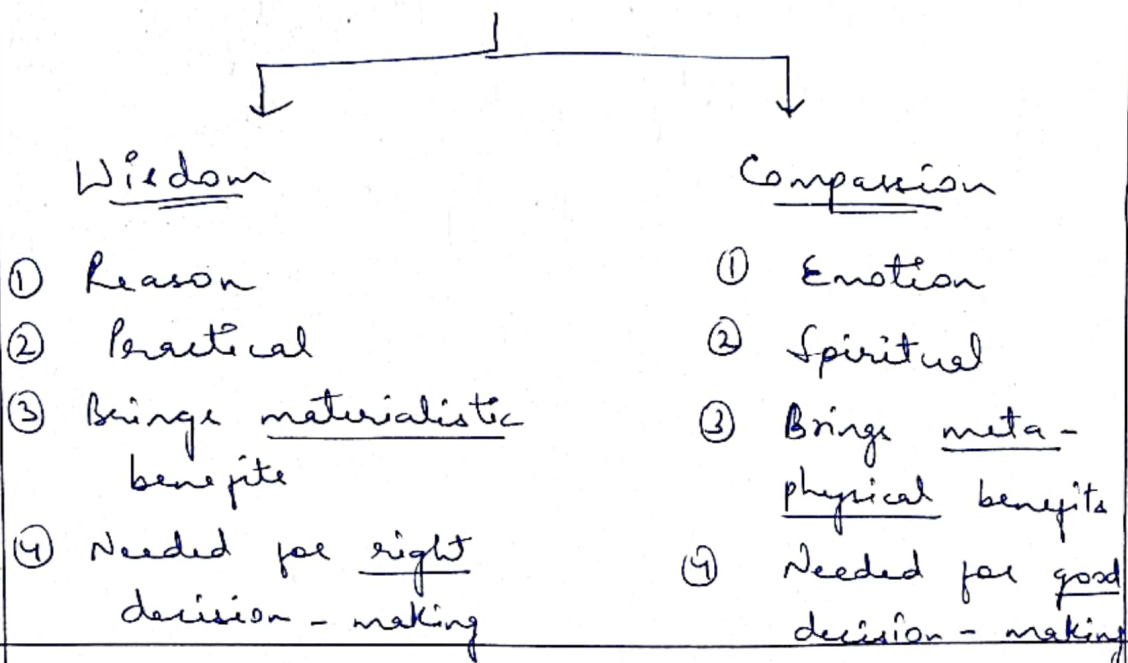 Wisdom
① Reason
② Practical
③ Brings materialistic
benefits
④ Needed for right
decision - making
Compassion
① Emotion
② Spiritual
③ Brings meta-
physical benefits
④ Needed for good
decision - making